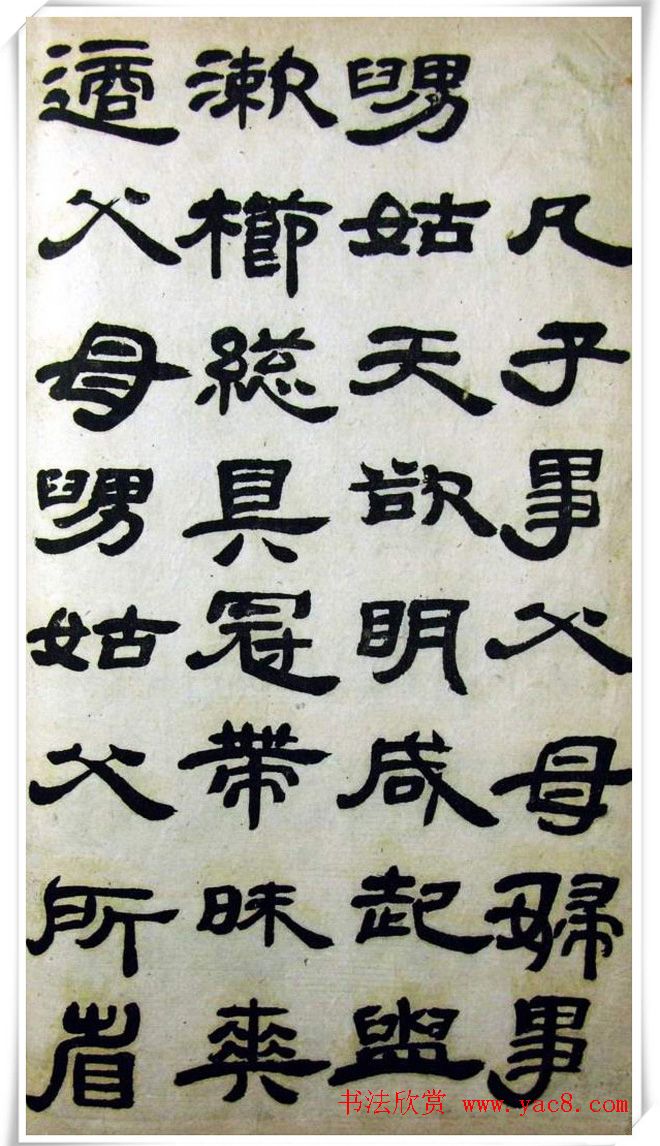 凡子事父母婦事
舅姑天欲明咸起盥
漱櫛総具冠帶昧爽
適父母舅姑父所省
书法欣赏 www.yac8.com